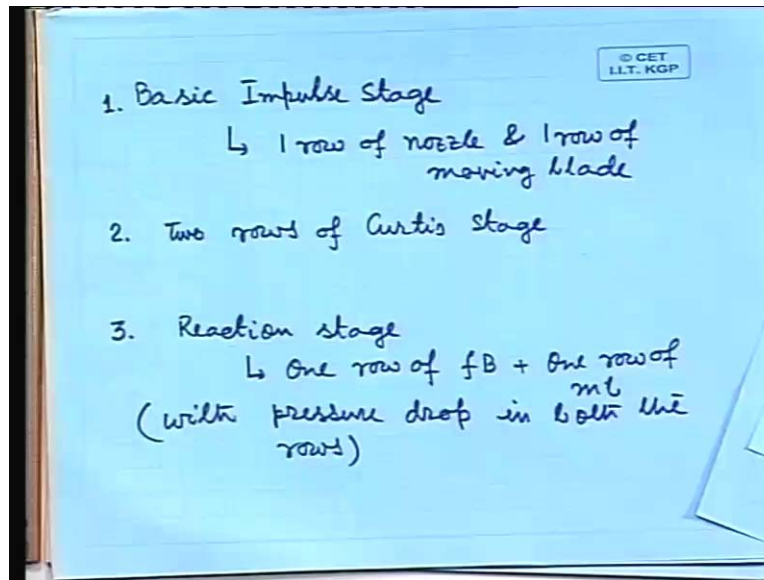 © CET
I.I.T. KGP
1. Basic Impulse Stage
↳ 1 row of nozzle & 1 row of
moving blade
2. Two rows of Curtis Stage
3. Reaction stage
↳ One row of fB + One row of
mb
(with pressure drop in both the
rows)